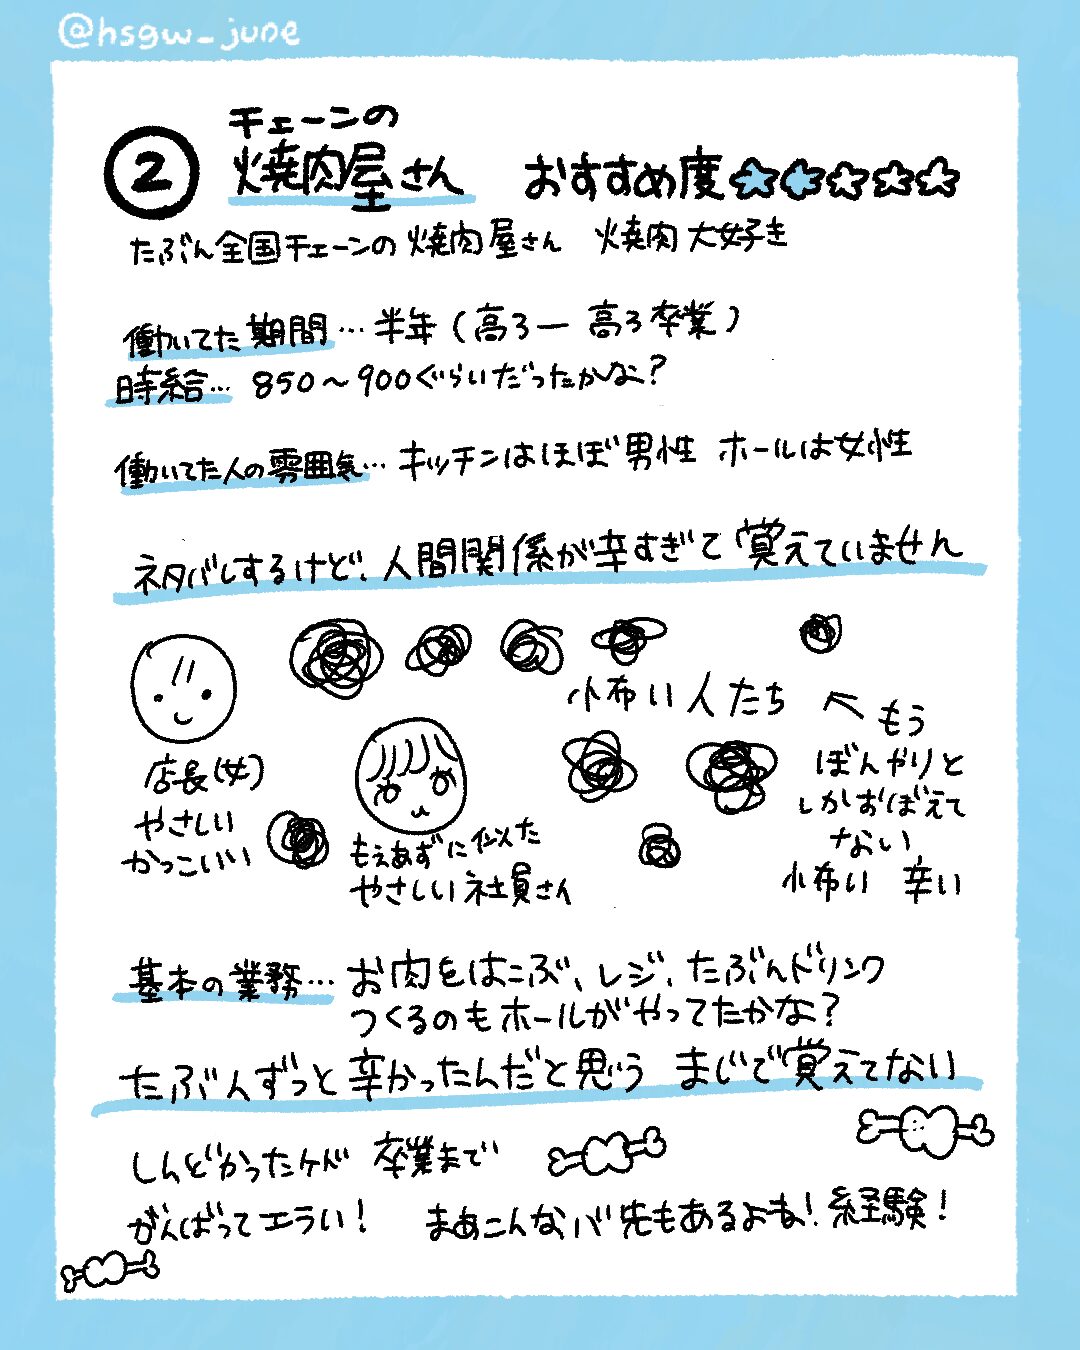 @hsgw_june
② チェーンの
焼肉屋さん おすすめ度★★☆☆☆
たぶん全国チェーンの焼肉屋さん 焼肉大好き
働いてた期間…半年(高3ー高3卒業)
時給… 850〜900ぐらいだったかな?
働いてた人の雰囲気…キッチンはほぼ男性 ホールは女性
ネタバレするけど、人間関係が辛すぎて覚えていません
小布い人たち
店長(女)
やさしい
かっこいい
もえあずに似た
やさしい社員さん
←もう
ぼんやりと
しかおぼえて
ない
小布い 辛い
基本の業務…お肉をはこぶ、レジ、たぶんドリンク
つくるのもホールがやってたかな?
たぶんずっと辛かったんだと思う まじで覚えてない
しんどかったケド 卒業まで
がんばってエラい!
まあこんなバ先もあるよね!経験!